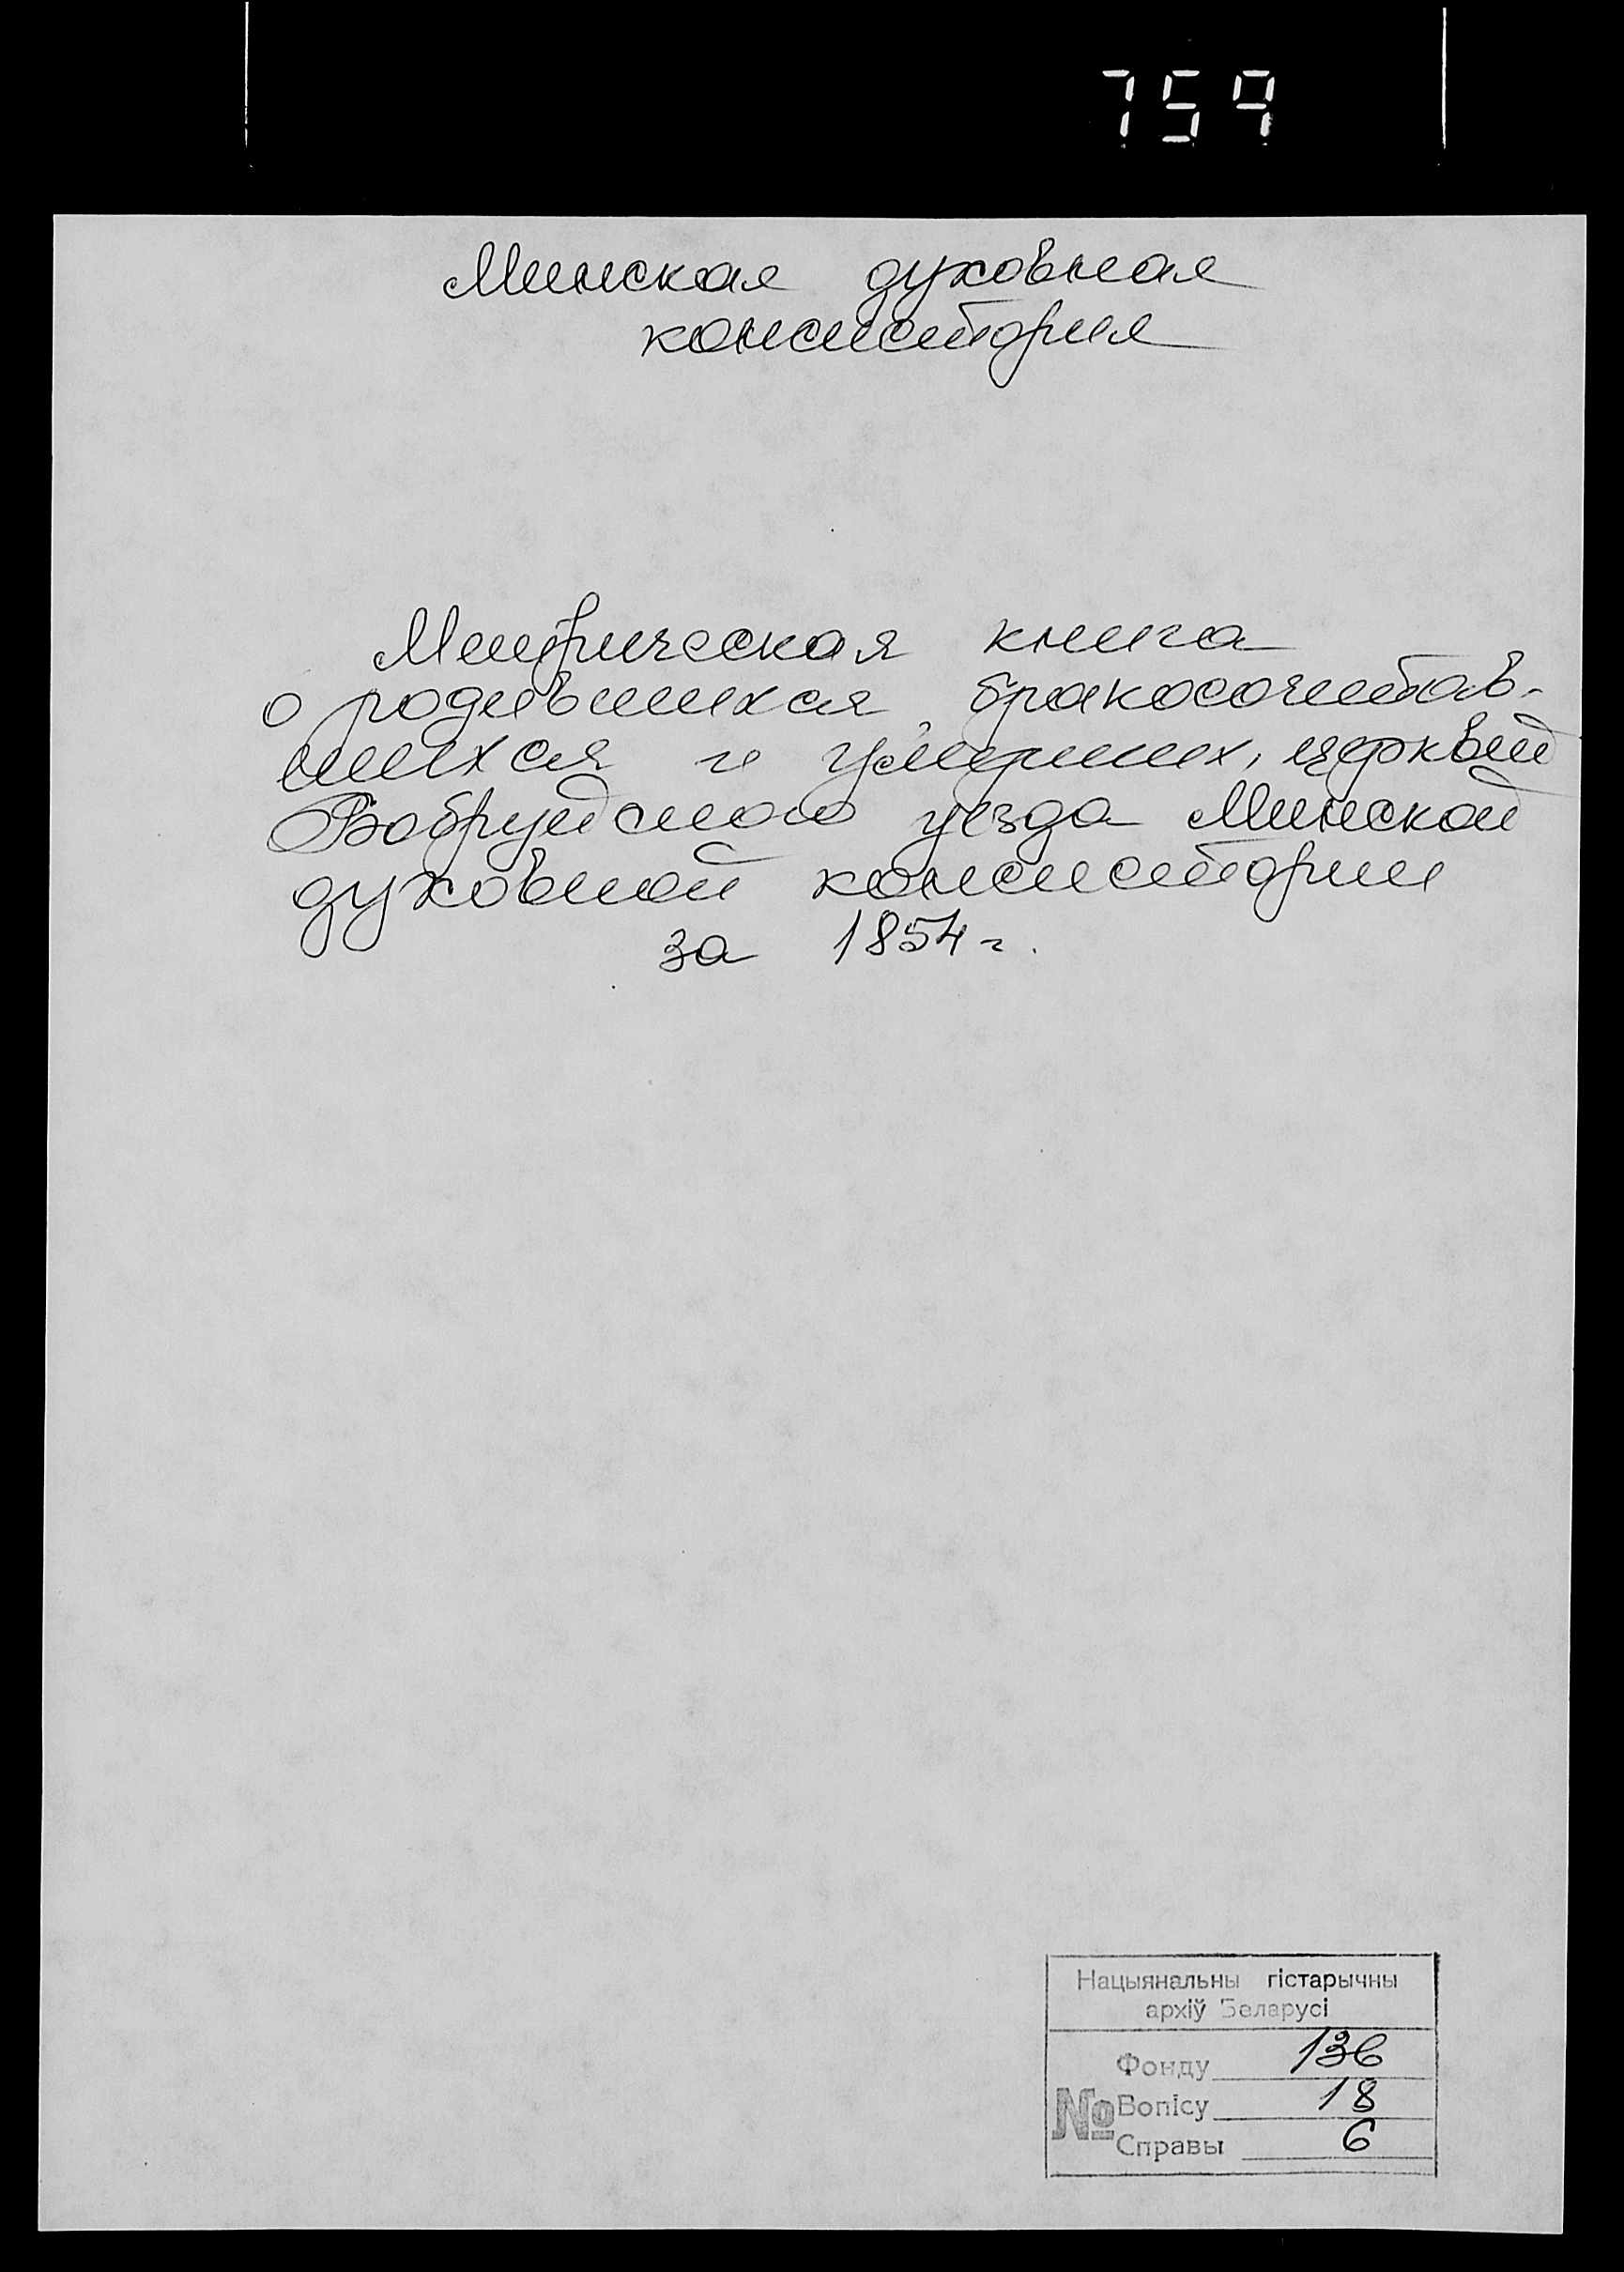 759
Минская духовная
консистория
Метрическая книга
о родившихся, бракосочетав-
шихся и умерших, церквей
Бобруйского уезда Минской
духовной консистории
за 1854 г.
Нацыянальны гістарычны
архіў Беларусі
Фонду 136
№ Вопісу 18
Справы 6